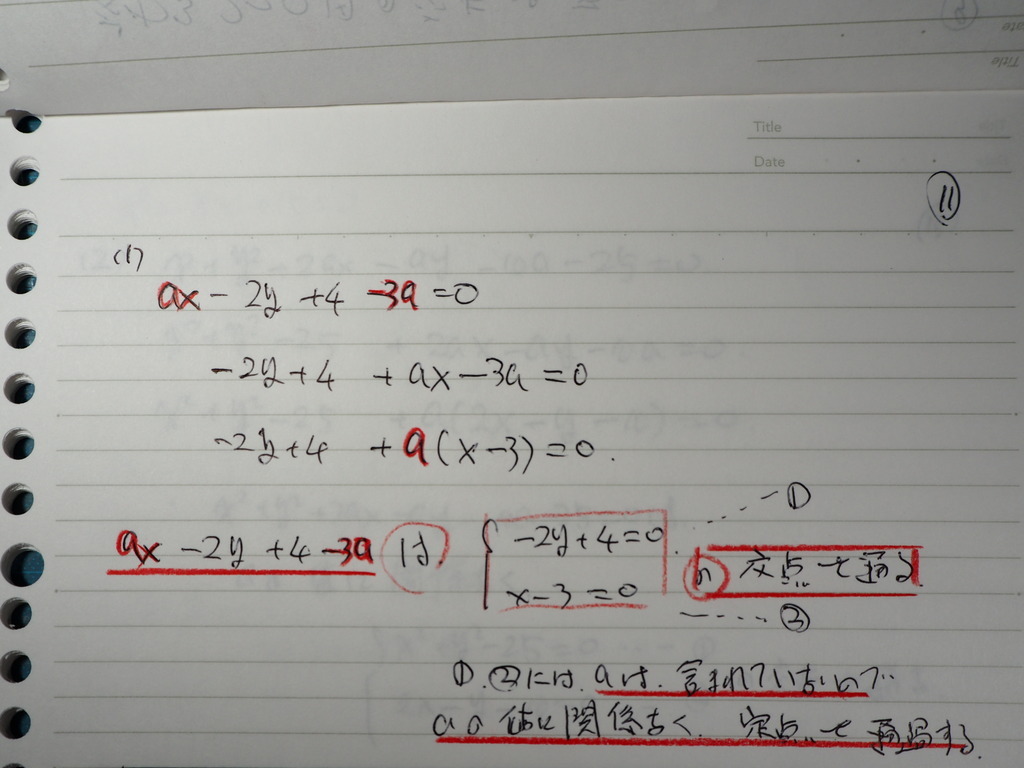 Title
Date
⑪
(1)
ax - 2y + 4 - 3a = 0
-2y + 4 + ax - 3a = 0
-2y + 4 + a(x - 3) = 0.
ax - 2y + 4 - 3a は { -2y + 4 = 0 ・・・・ ー①
x - 3 = 0 ・・・・ ② の 交点を通る
①.②には.aは.含まれていないので
aの値に関係なく. 定点を通過する.